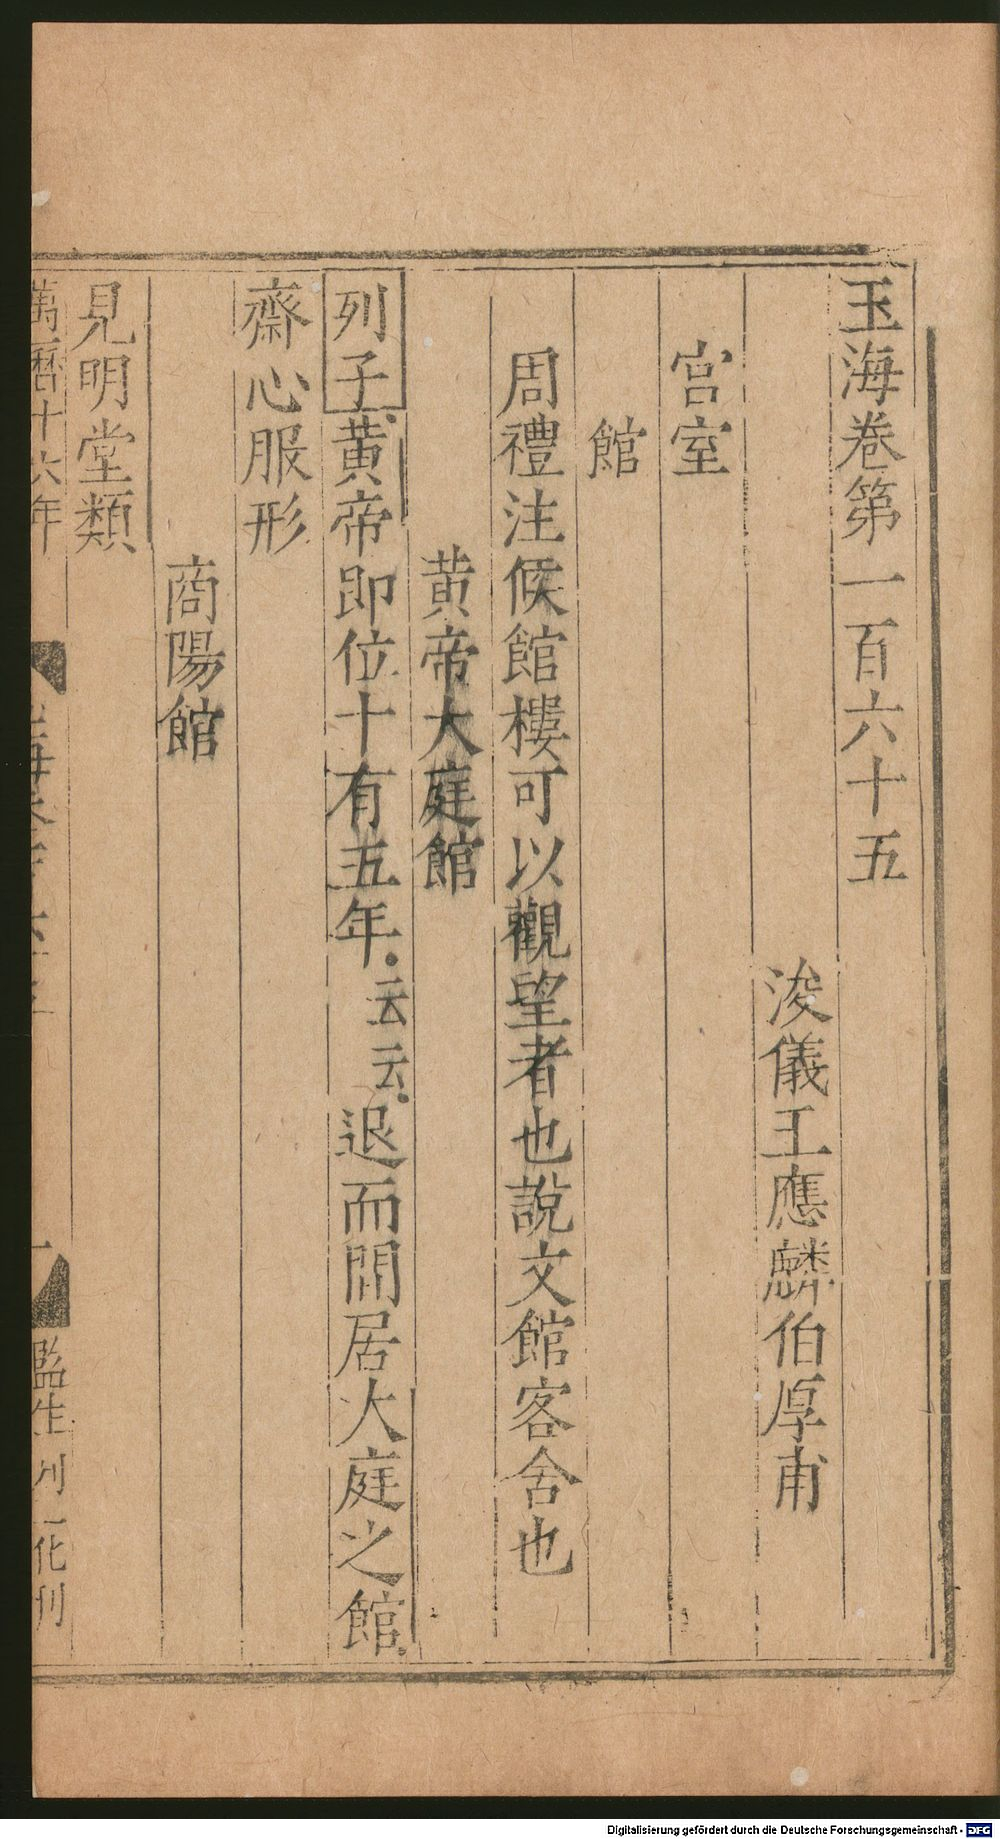 玉海卷第一百六十五
浚儀王應麟伯厚甫
宮室
館
周禮注候館樓可以觀望者也說文館客舍也
黃帝大庭館
列子黃帝即位十有五年云云退而閒居大庭之館
齋心服形
商陽館
見明堂類
萬曆十六年
監生刘一化刊
Digitalisierung gefördert durch die Deutsche Forschungsgemeinschaft - DFG